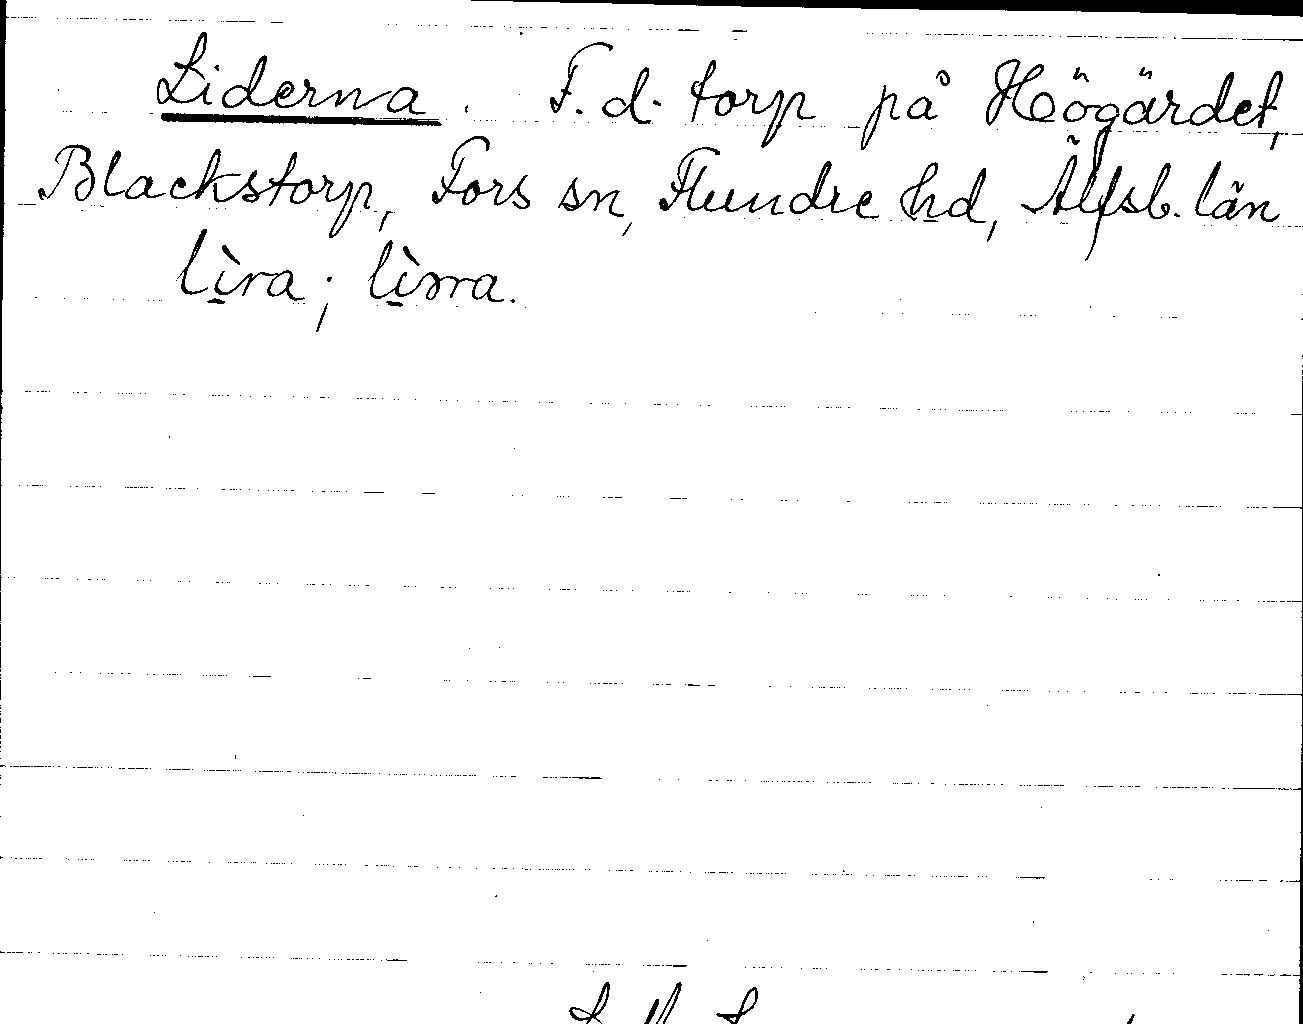 Liderna. F.d. torp på Högärdet,
Blackstorp, Fors sn, Flundre hd, Älfsb. län
lì̱ra; lì̱rra.